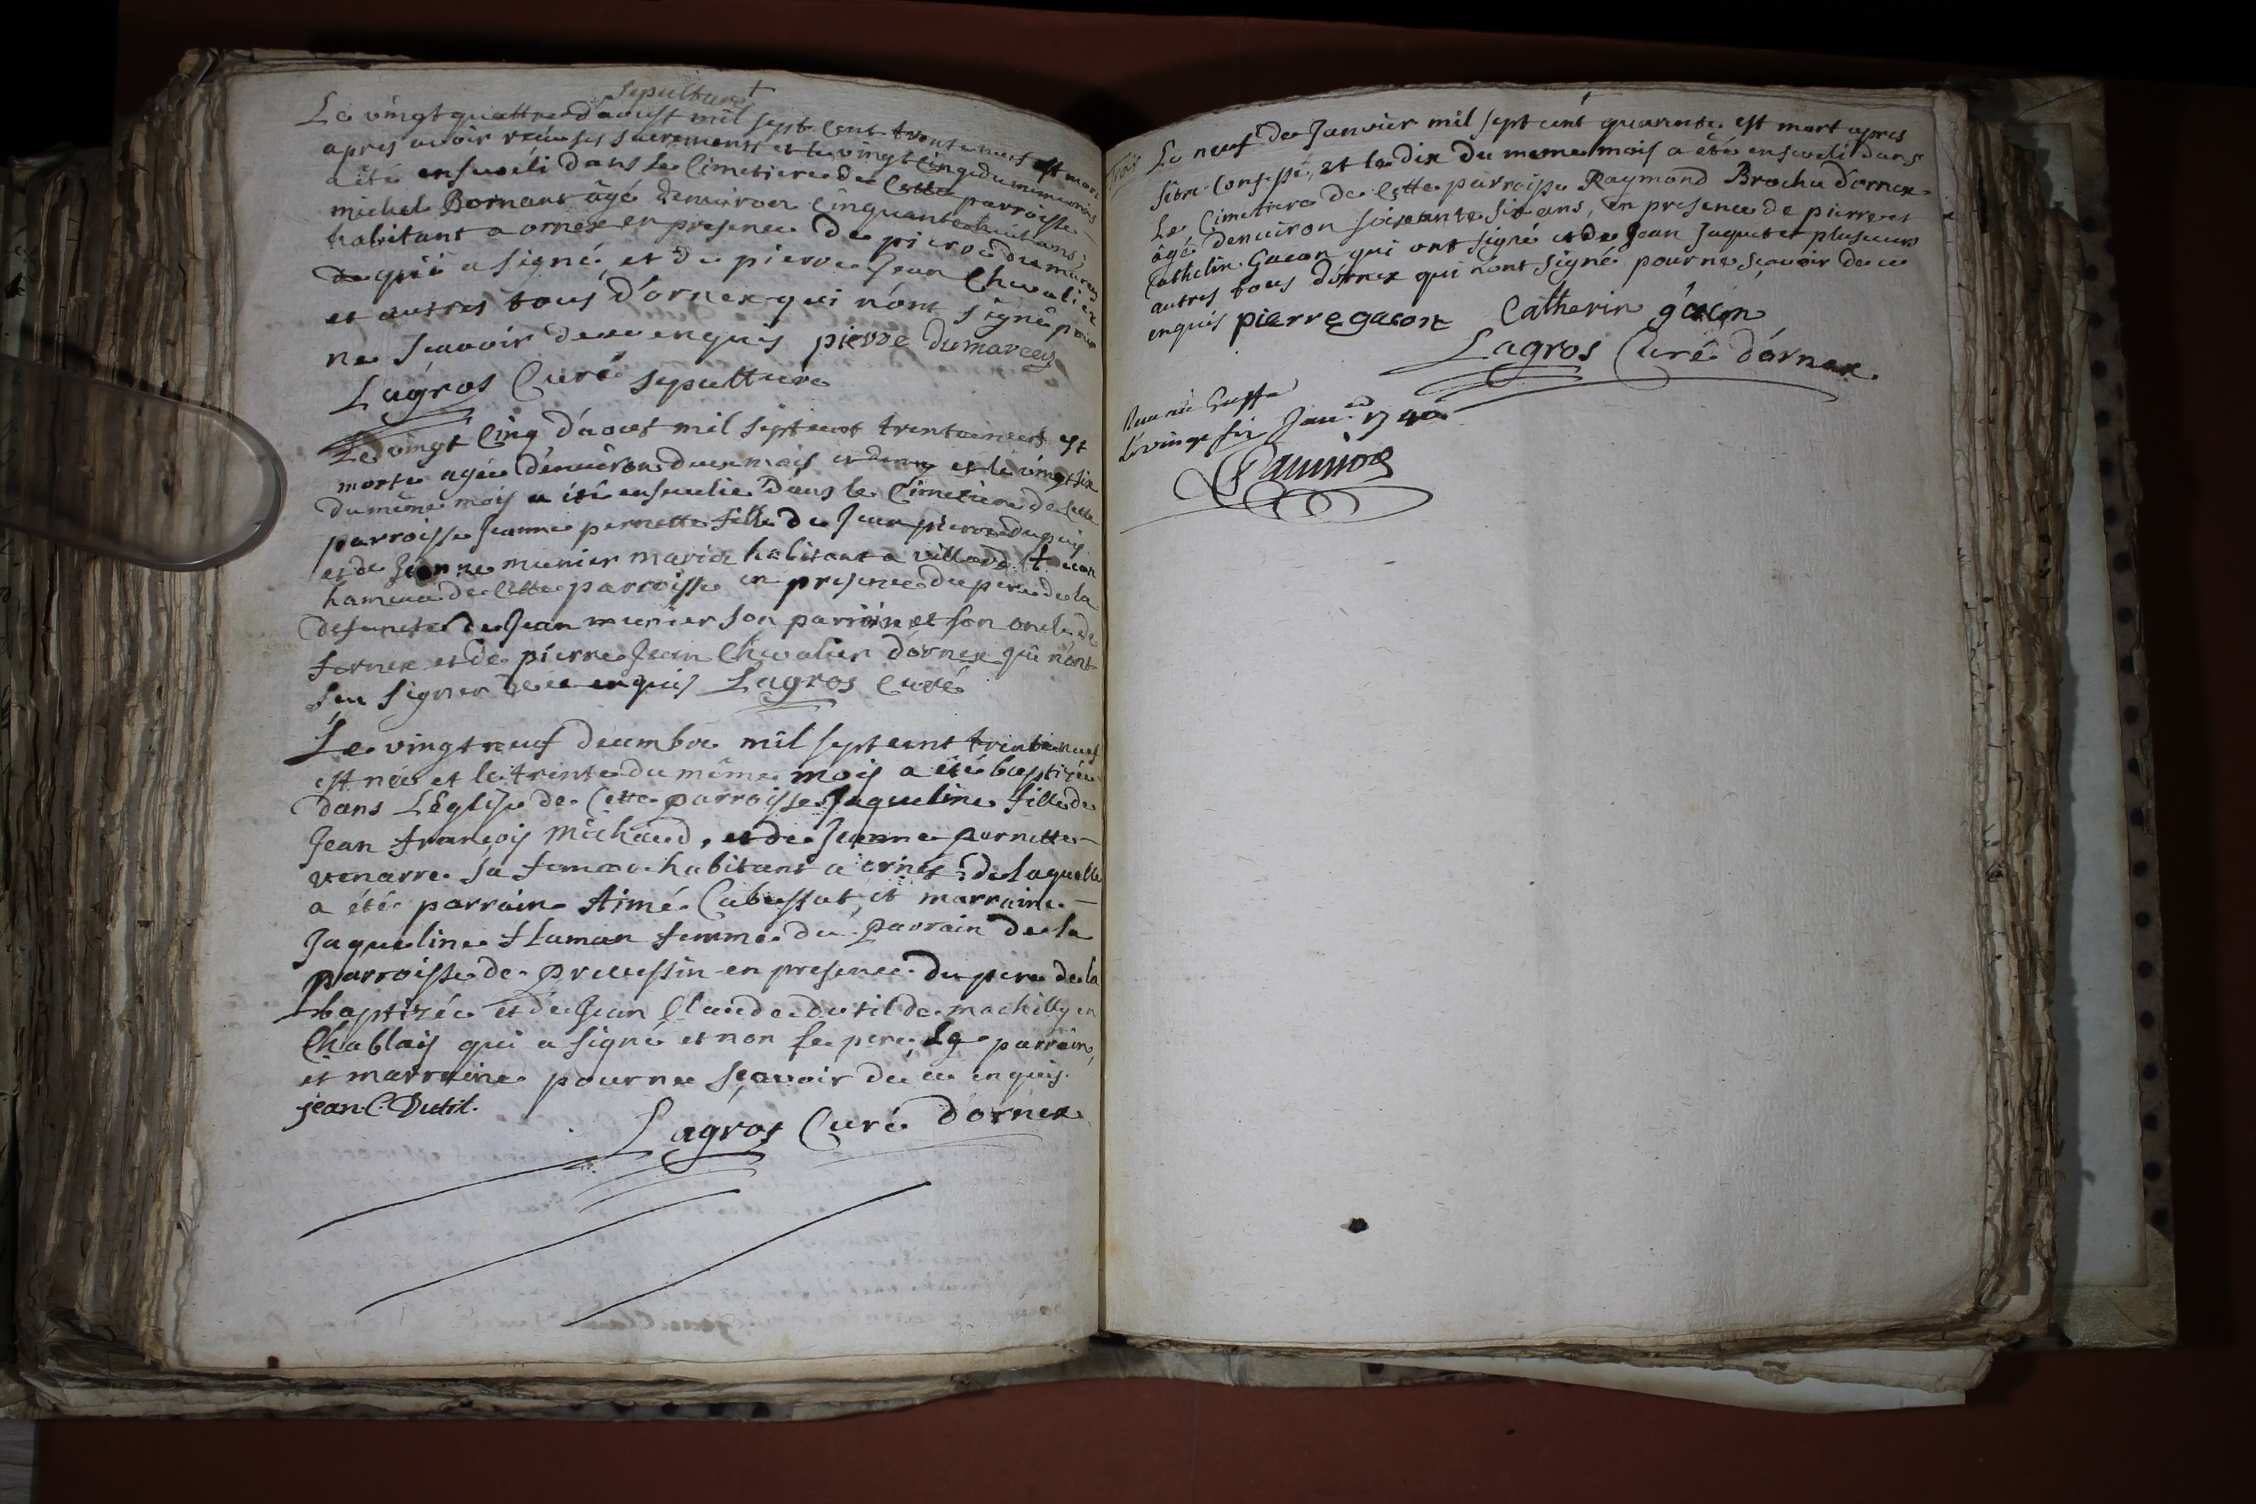 sepulture +
Le vingt quattre d'aoust mil sept cent trente neuf est mort
apres avoir reçu ses sacrements et le vingt cinq du meme mois
a été enseveli dans le Cimetiere de Cette parroisse
michel Bornant âgé d'environ Cinquante huit ans
habitant a ornex en presence de pierre dumarcey
qui a signé, et de pierre Jean Chevalier
et autres tous d'ornex qui n'ont signé pour
ne sçavoir de ce enquis pierre Dumarcey
Lagros Curé sepulture
Le vingt Cinq d'aout mil sept cent trente neuf est
morte agée d'environ deux mois et demy et le vingt six
du même mois a été ensevelie dans le Cimetiere de Cette
parroisse Jeanne pernette fille de Jean pierre dupuis
et de Jeanne munier mariéz habitant a villard
hameau de Cette parroisse en presence du pere de la
defuncte de Jean munier son parrin et son oncle de
fernex et de pierre Jean Chevalier d'ornex qui n'ont
seu signer de ce enquis Lagros Curé
Le vingt neuf decembre mil sept cent trente neuf
est née et le trente du même mois a été baptizée
dans L'Eglise de Cette parroisse Jaqueline fille de
Jean françois michaud, et de Jeanne pernette
venarre sa femme habitant a ornex de Laquelle
a été parrain Aimé Cabussat, et marraine
Jaqueline flaman femme du parrain de la
parroisse de prevessin en presence du pere de la
baptizée et de Jean Claude dutil de machilly en
Chablais qui a signé et non le pere, Le parrain,
et marraine pour ne sçavoir de ce enquis.
jean. C. Dutil.
Lagros Curé d'ornex
Le neuf de Janvier mil sept cent quarante est mort apres
s'être Confessé, et le dix du meme mois a été enseveli dans
Le Cimetiere de Cette parroisse Raymond Brochu d'ornex
âgé d'environ soixante six ans, en presence de pierre et
Cathelin Gacon qui ont signé et de Jean Jaquet et plusieurs
autres tous d'ornex qui n'ont signé pour ne sçavoir de ce
enquis pierre gacon Catherin gacon
Lagros Curé d'ornex.
Remis au Greffe
Le vingt six Janer 1740